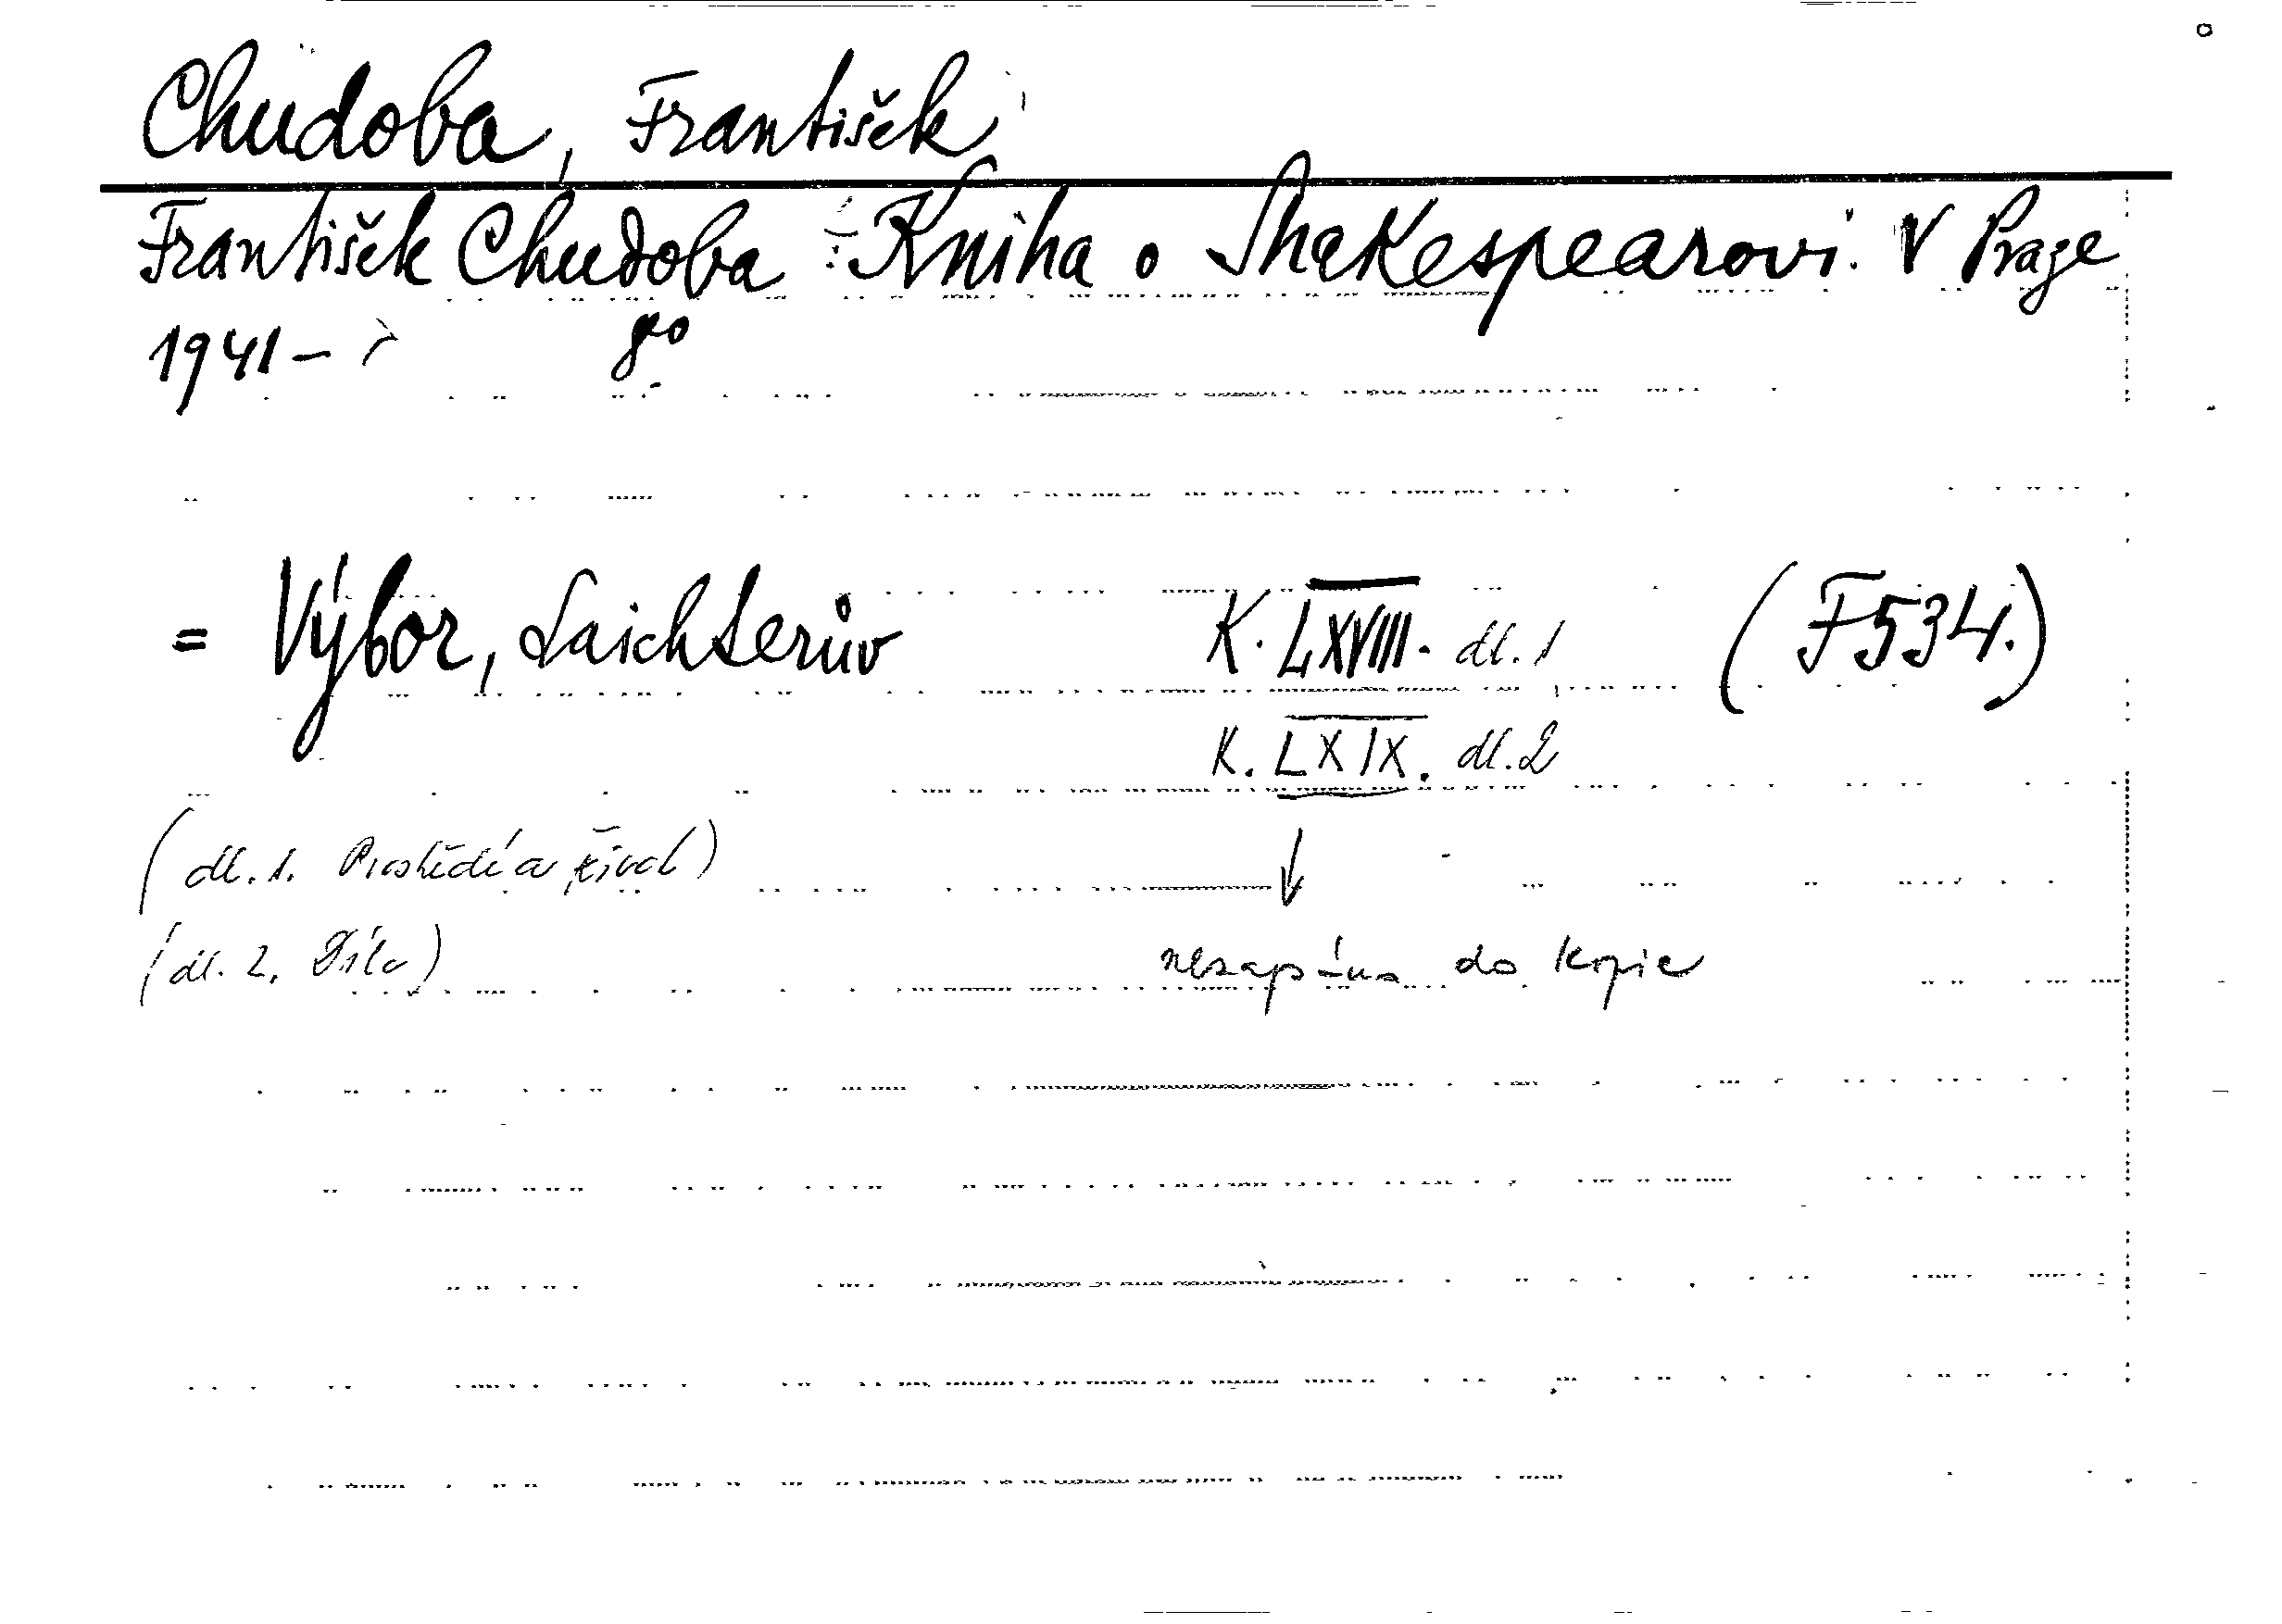 Chudoba, František
František Chudoba: Kniha o Shakespearovi. V Praze
1941- 8°
= Výbor, Laichterův K. LXVIII. dl. 1 (F534.)
K. LXIX. dl. 2
(dl. 1. Prostředí a život)
(dl. 2. Dílo)
do kopie